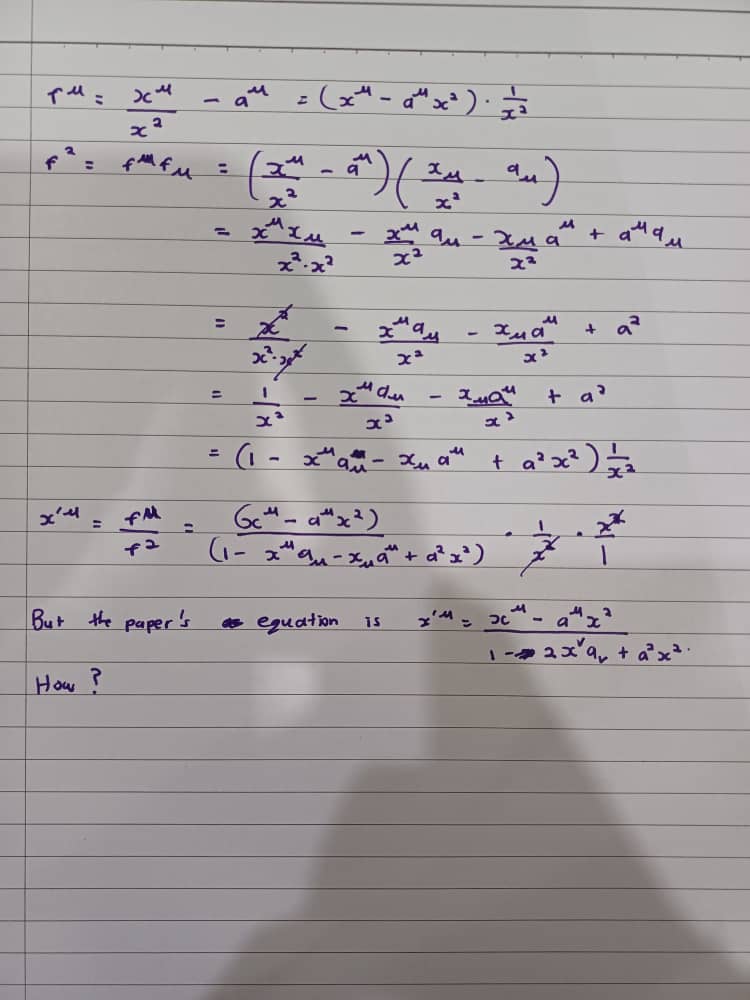 r^μ = x^μ/x² - a^μ = (x^μ - a^μ x²) · 1/x²
r² = r^μ r_μ = (x^μ/x² - a^μ)(x_μ/x² - a_μ)
= x^μ x_μ/(x²·x²) - x^μ/x² a_μ - x_μ/x² a^μ + a^μ a_μ
= x²/(x²·x²) - x^μ a_μ/x² - x_μ a^μ/x² + a²
= 1/x² - x^μ a_μ/x² - x_μ a^μ/x² + a²
= (1 - x^μ a_μ - x_μ a^μ + a² x²) 1/x²
x'^μ = r^μ/r² = (x^μ - a^μ x²)/(1 - x^μ a_μ - x_μ a^μ + a² x²) · 1/x² · x²/1
But the paper's equation is x'^μ = (x^μ - a^μ x²)/(1 - 2 x^ν a_ν + a² x².)
How?